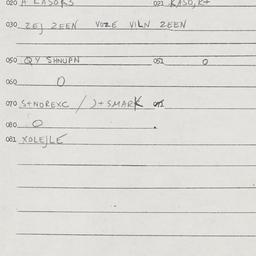 020 A LASORS 021 KASO, K+
030 ZEJ ZEEN VOZE VILN ZEEN
050 QY SHNUPN 051 O
060 O
070 S+NOREXC / J+SMARK 071
080 O
081 XOLEJLE